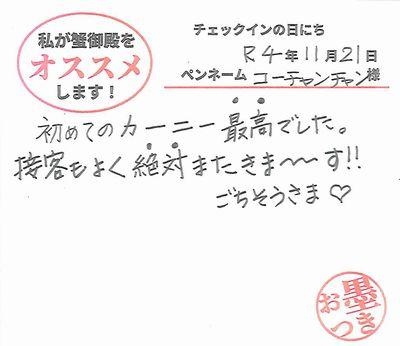 私が蟹御殿を
オススメ
します！
チェックインの日にち
R4年11月21日
ペンネーム コーチャンチャン様
初めてのカーニー最高でした。
接客もよく絶対またきま〜〜す!!
ごちそうさま♡
お墨つき